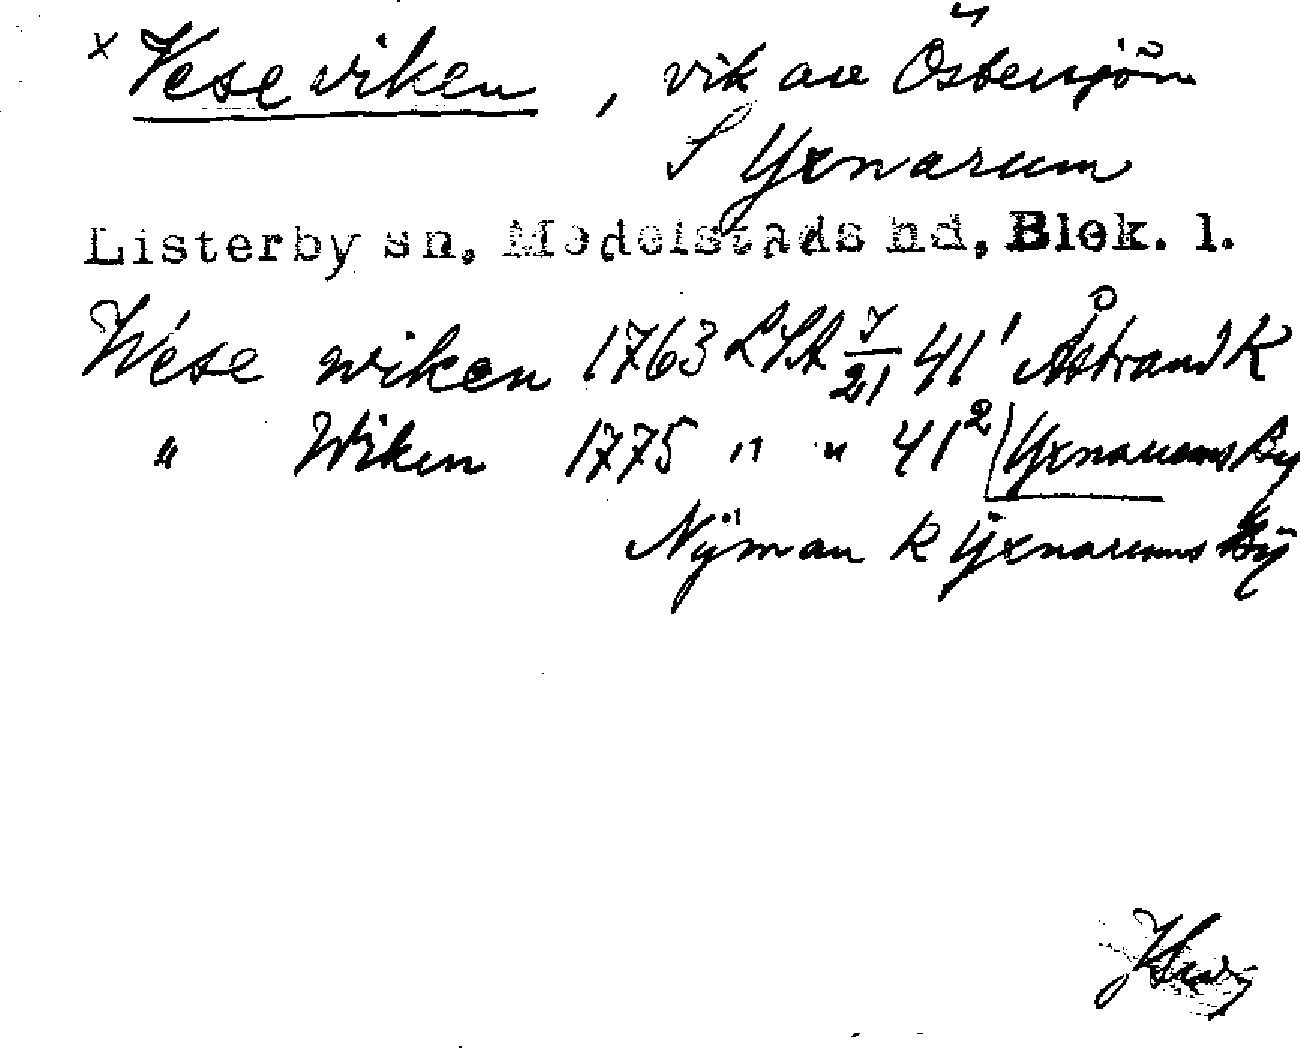 x Vese viken, vik av Östersjön
S Yxnarum
Listerby sn, Medelstads hd, Blek. l.
Wese wiken 1763 LSA 7/21 41¹ Åstrand K
" Wiken 1775 " " 41² Yxnarums By
Nÿman K Ÿxnarums Bÿ